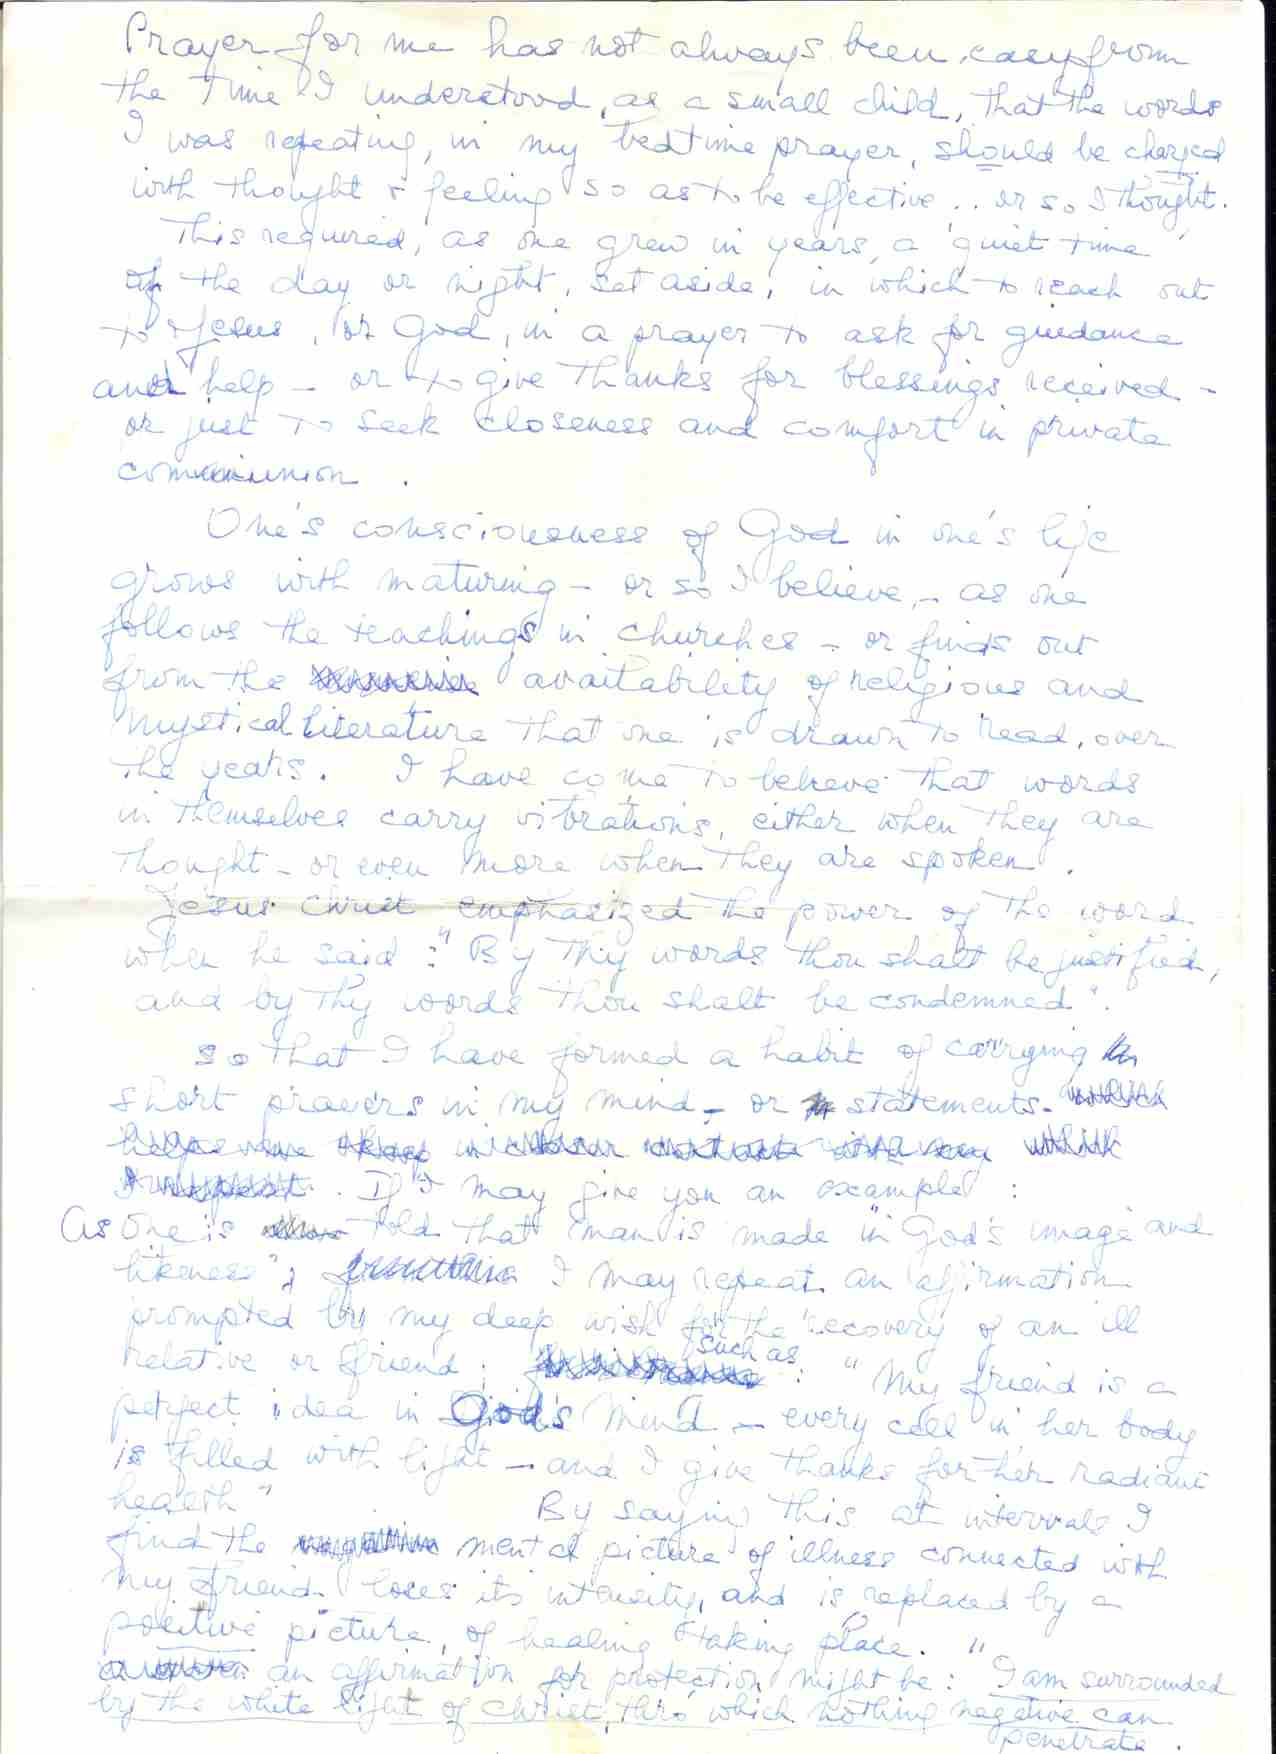 Prayer for me has not always been easy from
the time I understood, as a small child, that the words
I was repeating, in my bedtime prayer, should be charged
with thought & feeling so as to be effective .. or so I thought.
This required, as one grew in years, a 'quiet time'
of the day or night, set aside, in which to reach out
to Jesus, or God, in a prayer to ask for guidance
and help - or to give thanks for blessings received -
or just to seek closeness and comfort in private
communion .
One's consciousness of God in one's life
grows with maturing - or so I believe, - as one
follows the teachings in churches - or finds out
from the availability of religious and
mystical literature that one is drawn to read, over
the years. I have come to believe that words
in themselves carry vibrations, either when they are
thought - or even more when they are spoken .
Jesus Christ emphasized the power of the word
when he said : "By thy words thou shalt be justified,
and by thy words thou shalt be condemned".
So that I have formed a habit of carrying
short prayers in my mind - or statements.
If I may give you an example :
As one is told that "man is made in God's image and
likeness", I may repeat an affirmation
prompted by my deep wish for the recovery of an ill
relative or friend ; such as : "My friend is a
perfect idea in God's Mind - every cell in her body
is filled with light - and I give thanks for her radiant
health" By saying this at intervals I
find the mental picture of illness connected with
my friend loses its intensity, and is replaced by a
positive picture, of healing taking place. "
an affirmation for protection might be : I am surrounded
by the white light of Christ, thro' which nothing negative can
penetrate .